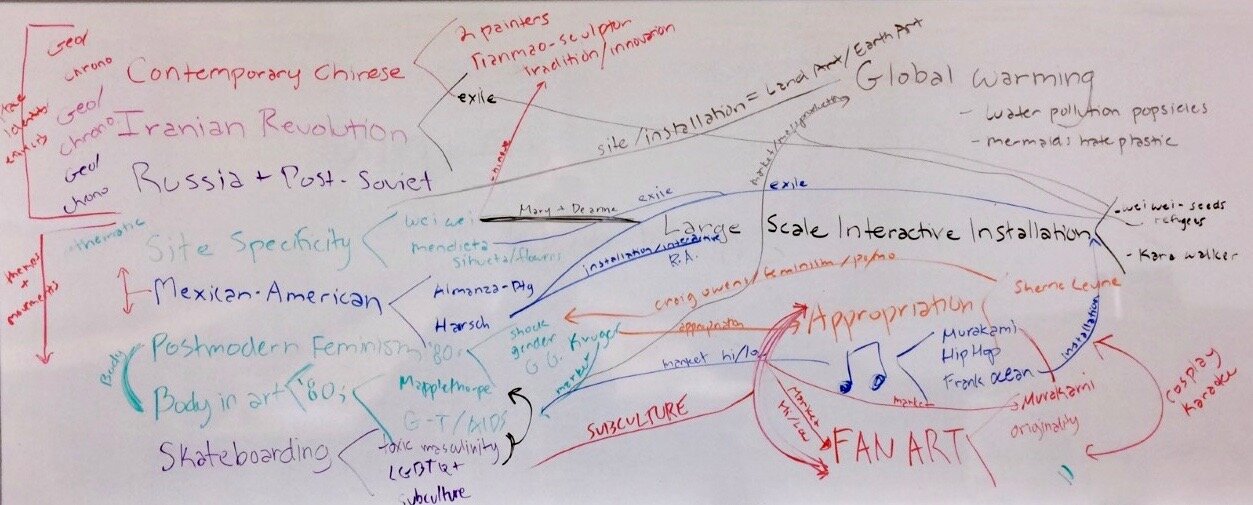 Geol
chrono
Contemporary Chinese
2 painters
Tianmao-sculptor
Tradition/innovation
Geol
chrono
Iranian Revolution
exile
Geol
chrono
Russia + Post-Soviet
chinese
site/installation = Land Art/Earth Art
Global warming
- water pollution popsicles
- mermaids hate plastic
themes
+
movements
thematic
Site Specificity
wei wei
mendieta
silueta/flowers
Mary + Deanne
exile
exile
Large Scale Interactive Installation
- wei wei - seeds
refugees
- Kara walker
installation/interactive
R.A.
Mexican-American
Almanza-Ptg
Harsch
craig owens/feminism/pomo
Sherrie Levine
Body
Postmodern Feminism '80s
shock
gender
G.G. Kruger
appropriation
Appropriation
market
market hi/low
Murakami
Hip Hop
Frank Ocean
installation
Body in art '80s
Mapplethorpe
G-T/AIDS
market
Murakami
originality
cosplay
Karaoke
Skateboarding
toxic masculinity
LGBTQ+
subculture
SUBCULTURE
Market
Hi/Low
FAN ART